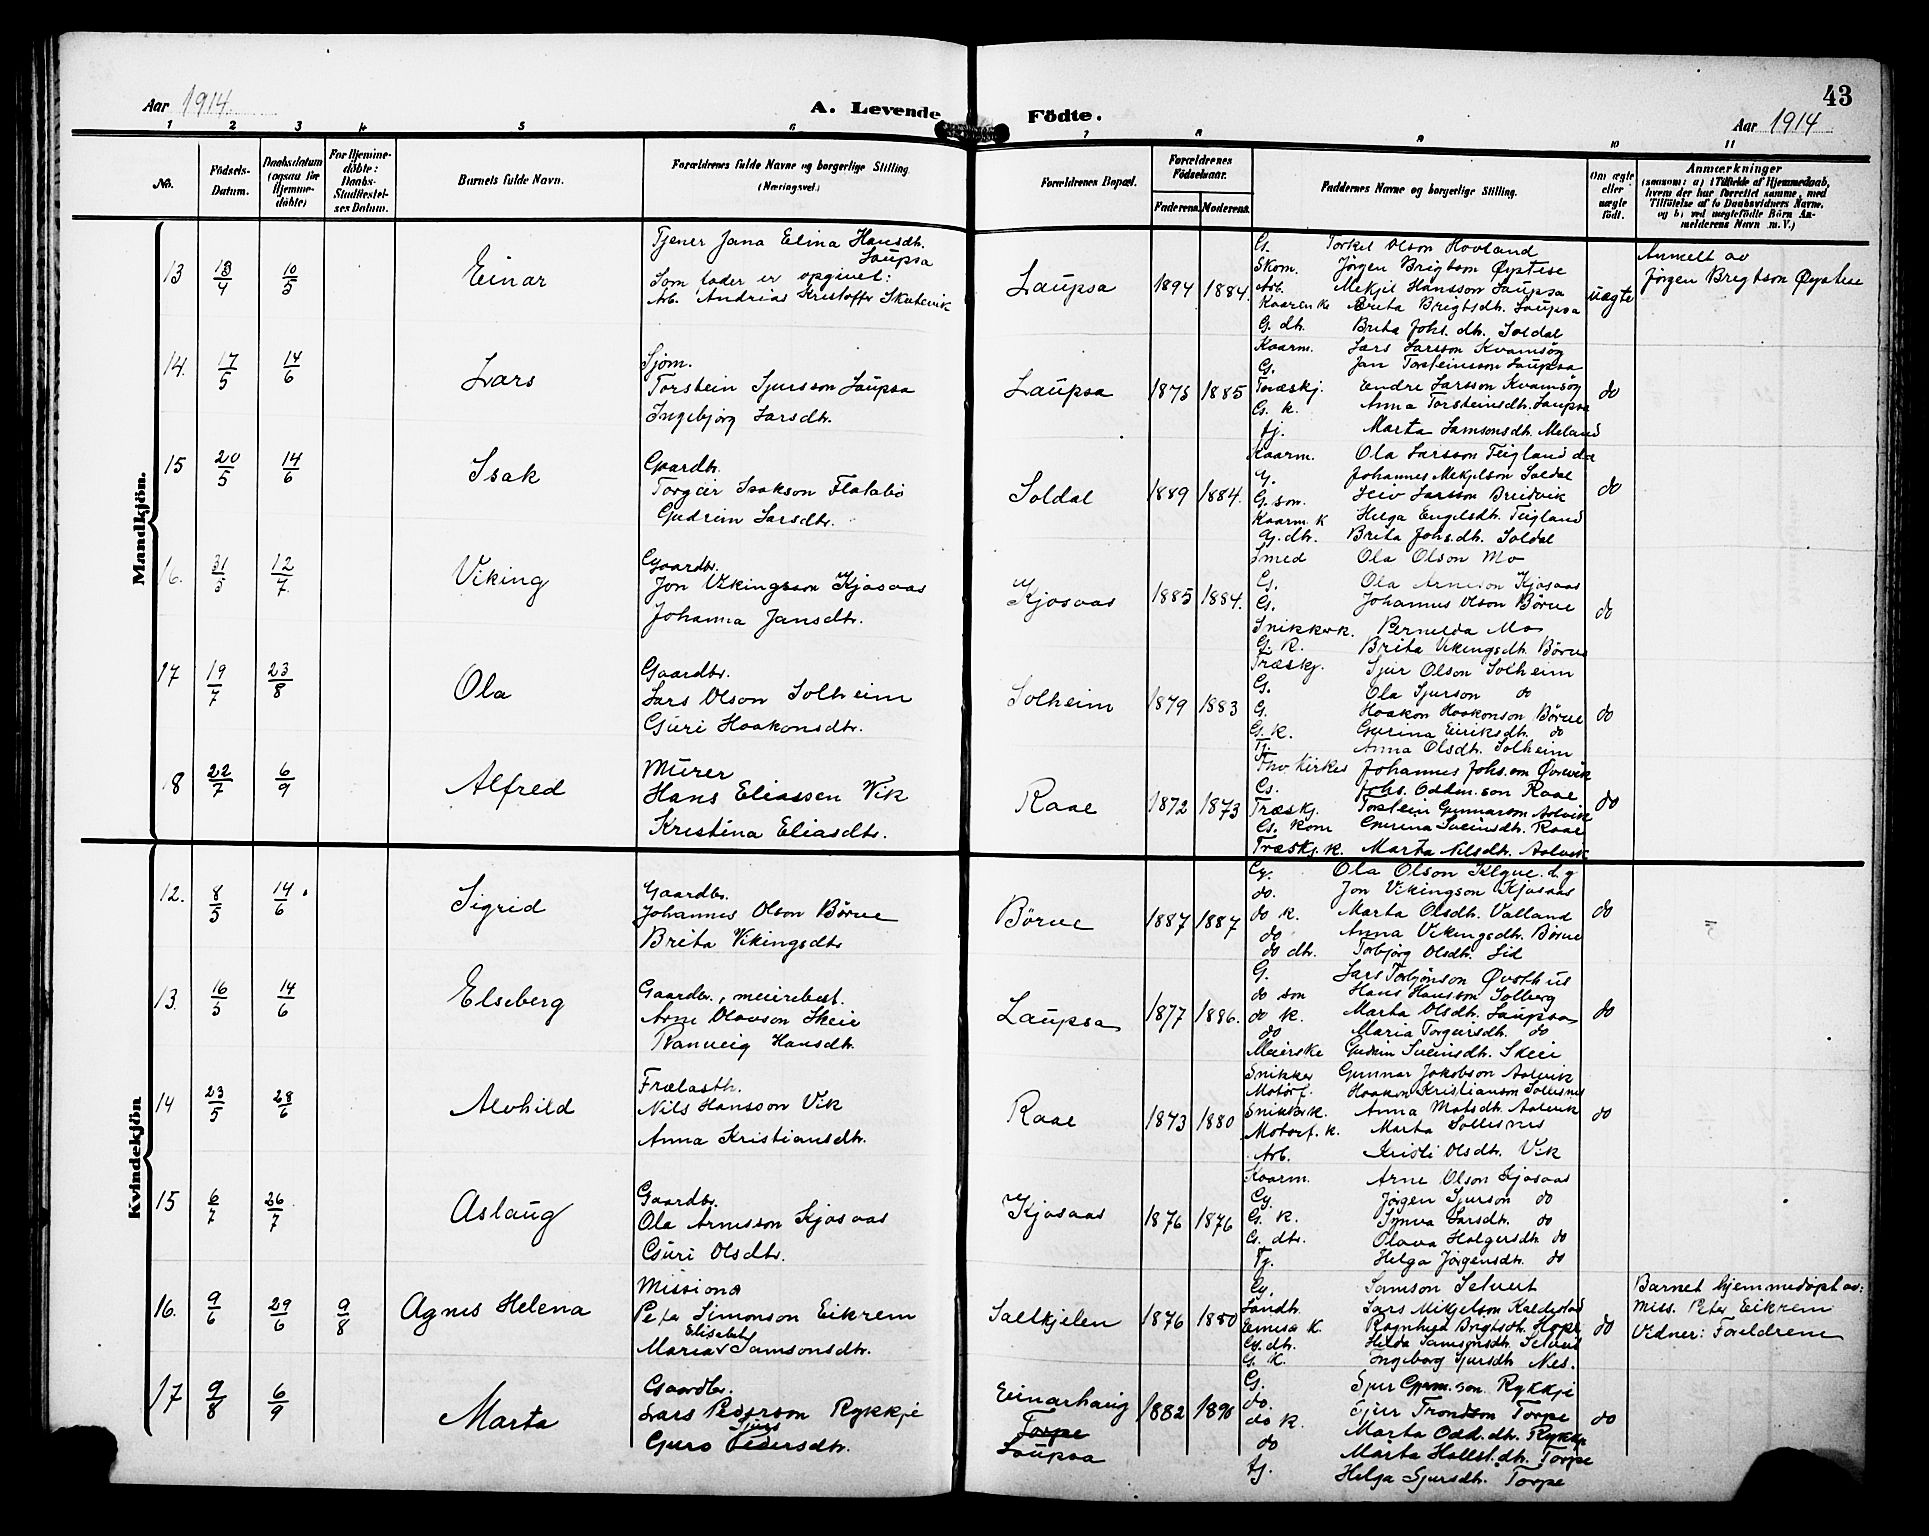 Aar 1914.
A. Levende Födte.
43
Aar 1914
1 2 3 4 5 6 7 8 9 10 11
No.
Födsels-Datum.
Daabsdatum (ogsaa for Hjemme-döbte)
For Hjemme-döbte: Daabs-Stadfæstel-ses Datum.
Barnets fulde Navn.
Forældrenes fulde Navne og borgerlige Stilling (Næringsvei.)
Forældrenes Bopæl.
Forældrenes Födselsaar.
Faderens. Moderens.
Faddernes Navne og borgerlige Stilling.
Om ægte eller uægte födt.
Anmærkninger
(saasom: a) i Tilfælde af Hjemmedaab,
hvem der har forrettet samme, med
Tilföielse af to Daabsvidners Navne,
og b) ved uægtefödte Börn An-
melderens Navn m. V.)
Mandkjön.
13 13/4 10/5 Einar
Tjener Jana Elina Hansdtr.
Laupsa
Som fader er opgivet:
Arb. Andrias Kristoffs Skutevik
Laupsa 1894 1884. uægte
G. Torkel Olson Hovland
Skom. Jørgen Brigtson Øystese
Arb. Mekjil Hansson Laupsa
Kaarm k Brita Brigtsdtr. Laupsa
G. dtr. Brita Johs. dtr. Soldal
Anmelt av
Jørgen Brigtson Øystese
14. 17/5 14/6 Lars
Sjöm.
Torstein Sjursson Laupsa
Ingebjörg Larsdtr.
Laupsa 1875 1885 do
Kaarm. Lars Larsson Kvamsøy
G. Jan Torsteinsson Laupsa
Træskj. Endre Larsson Kvamsøy
G. k. Anna Torsteinsdtr. Laupsa
tj. Marta Samsonsdtr. Meland
15 20/5 14/6 Isak
Gaardbr.
Torgeir Isakson Flatabö
Gudrun Larsdtr.
Soldal 1889 1884. do
Kaarm. Ola Larsson Teigland
G. Johannes Mekjelson Soldal
G. son. Larsson Breidvik
Kaarm. k Helga Engelsdtr. Teigland
G. dtr. Brita Johs.dtr. Soldal
16. 31/5 12/7 Viking
Gaardbr.
Jon Vikingsson Kjosaas
Johanna Jansdtr.
Kjosaas 1885 1884. do
Smed Ola Olson Mo
G. Ola Arneson Kjosaas
G. Johannes Olson Börve
Snikkerk. Bernilda Mo
G. K. Brita Vikingsdtr Börve
17 19/7 23/8 Ola
Gaardbr.
Lars Olson Solheim
Guri Haakonsdtr.
Solheim 1879 1883 do
Træskj. Sjur Olson Solheim
G. Ola Sjurson do
G. Haakon Haakonson Börve
G. K. Gurina Eiriksdtr. do
Tj. Anna Olsdtr. Solheim
18 22/7 6/9 Alfred
Murer
Hans Eliassen Vik
Kristina Eliasdtr.
Raae 1872 1873 do
Johannes Johs.son
G. Johs. Odtm.son Raae
Træskj. Torstein Gunnarson Aalvik
G. kone Gurina Sveinsdtr. Raae
Træskj. k. Marta Nilsdtr. Aalvik
Kvindekjön
12. 8/5 14/6 Sigrid
Gaardbr.
Johannes Olson Börve
Brita Vikingsdtr
Börve 1887 1887 do
G. Ola Olson Klyve
do. Jon Vikingson Kjosaas
do K. Marta Olsdtr. Valland
do Anna Vikingsdtr. Börve
do dtr. Torbjörg Olsdtr. Lid
13. 16/5 14/6 Elseberg
Gaardbr., meieribest.
Arne Olavson Skeie
Ranveig Hansdtr.
Laupsa 1877 1886. do
G. Lars Torbjörnson Øvsthus
do son Hans Hansson Solberg
do K. Marta Olsdtr. Laupsa
do Maria Torgeirsdtr. do
Meierske Gudrun Sveinsdtr. Skeie
14 23/5 28/6 Alvhild
Frælasth.
Nils Hansson Vik
Anna Kristiansdtr.
Raae 1873 1880 do
Snikker Gunnar Jakobson Aalvik
Motorf. Haakon Kristianson Sollesnes
Snikkerk. Anna Matsdtr. Aalvik
Motorf. K. Marta Sollesnes
Arb. Kristi Olsdtr. Vik
15 6/7 26/7 Aslaug
Gaardbr.
Ola Arnesson Kjosaas
Guri Olsdtr.
Kjosaas 1876 1876
Kaarm. Arne Olson Kjosaas
G. Jørgen Sjurson do
G. K. Synva Larsdtr. do
G. dtr. Olava Holgersdtr do
Tj. Helga Jørgensdtr. do
16. 9/6 29/6 9/8 Agnes Helena
Missionær
Peter Simonson Eikrem
Elisabet
Maria Samsonsdtr.
Saltkjelen 1876 1880 do
G. Samson Setveit
Landh. Lars Mekjelson Kaldestad
K. Ragnhild Brigtsdtr. Hope
G. dtr. Hilda Samsonsdtr Setveit
G. K. Ingeborg Sjursdtr Nes.
Barnet hjemmedöpt av:
Miss. Peter Eikrem
Vidner: Foreldrene
17 9/8 6/9 Marta
Gaardbr.
Lars Pederson Rykkje
Sjurs
Guro Pedersdtr.
Einarhaug
Torpe
Laupsa
1882 1890 do
G. Sjur Rykkje
do. Sjur Trondson Torpe
do K. Marta Odd.dtr. Rykkje
do Marta Hallst.dtr. Torpe
tj. Helga Sjursdtr. Torpe